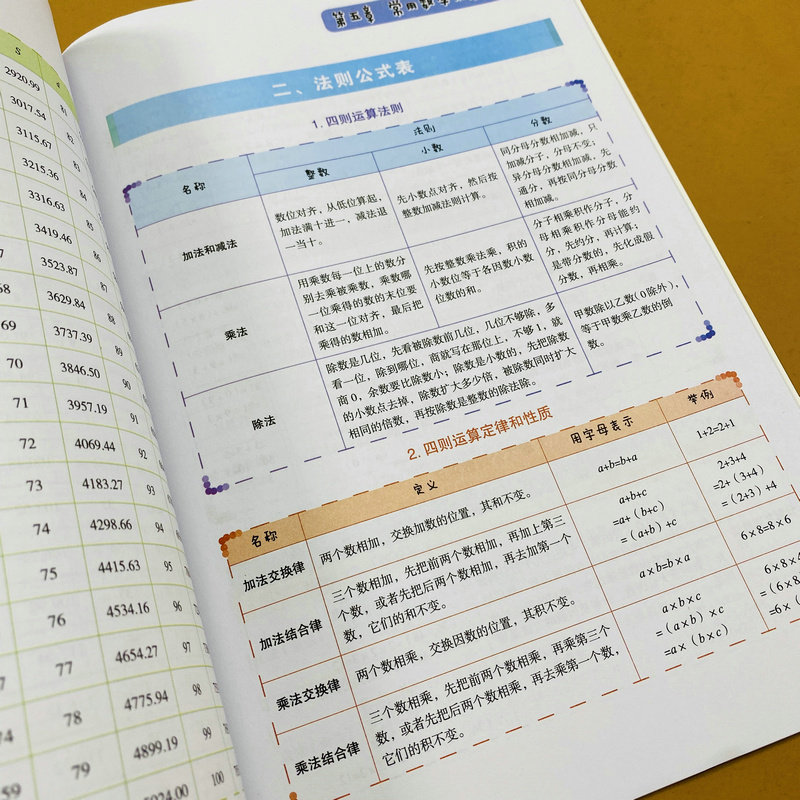 S
2920.99
81
3017.54
82
3115.67
83
3215.36
84
3316.63
85
3419.46
86
3523.87
87
68
3629.84
88
69
3737.39
89
70
3846.50
90
71
3957.19
91
72
4069.44
92
73
4183.27
93
74
4298.66
94
75
4415.63
95
76
4534.16
96
77
4654.27
97
78
4775.94
98
79
4899.19
99
100
第五章 常用数学
二、法则公式表
1. 四则运算法则
名称
法则
整数
小数
分数
加法和减法
数位对齐，从低位算起，
加法满十进一，减法退
一当十。
先小数点对齐，然后按
整数加减法则计算。
同分母分数相加减，只
加减分子，分母不变；
异分母分数相加减，先
通分，再按同分母分数
相加减。
乘法
用乘数每一位上的数分
别去乘被乘数，乘数哪
一位乘得的数的末位要
和这一位对齐，最后把
乘得的数相加。
先按整数乘法乘，积的
小数位等于各因数小数
位数的和。
分子相乘积作分子，分
母相乘积作分母能约
分，先约分，再计算；
是带分数的，先化成假
分数，再相乘。
除法
除数是几位，先看被除数前几位，几位不够除，多
看一位，除到哪位，商就写在那位上，不够1，就
商0，余数要比除数小；除数是小数的，先把除数
的小数点去掉，除数扩大多少倍，被除数同时扩大
相同的倍数，再按除数是整数的除法除。
甲数除以乙数(0除外)，
等于甲数乘乙数的倒
数。
2. 四则运算定律和性质
名称
定义
用字母表示
举例
加法交换律
两个数相加，交换加数的位置，其和不变。
a+b=b+a
1+2=2+1
加法结合律
三个数相加，先把前两个数相加，再加上第三
个数，或者先把后两个数相加，再去加第一个
数，它们的和不变。
a+b+c
=a+（b+c）
=（a+b）+c
2+3+4
=2+（3+4）
=（2+3）+4
乘法交换律
两个数相乘，交换因数的位置，其积不变。
a×b=b×a
6×8=8×6
乘法结合律
三个数相乘，先把前两个数相乘，再乘第三个
数，或者先把后两个数相乘，再去乘第一个数，
它们的积不变。
a×b×c
=（a×b）×c
=a×（b×c）
6×8×
=（6×8
=6×（